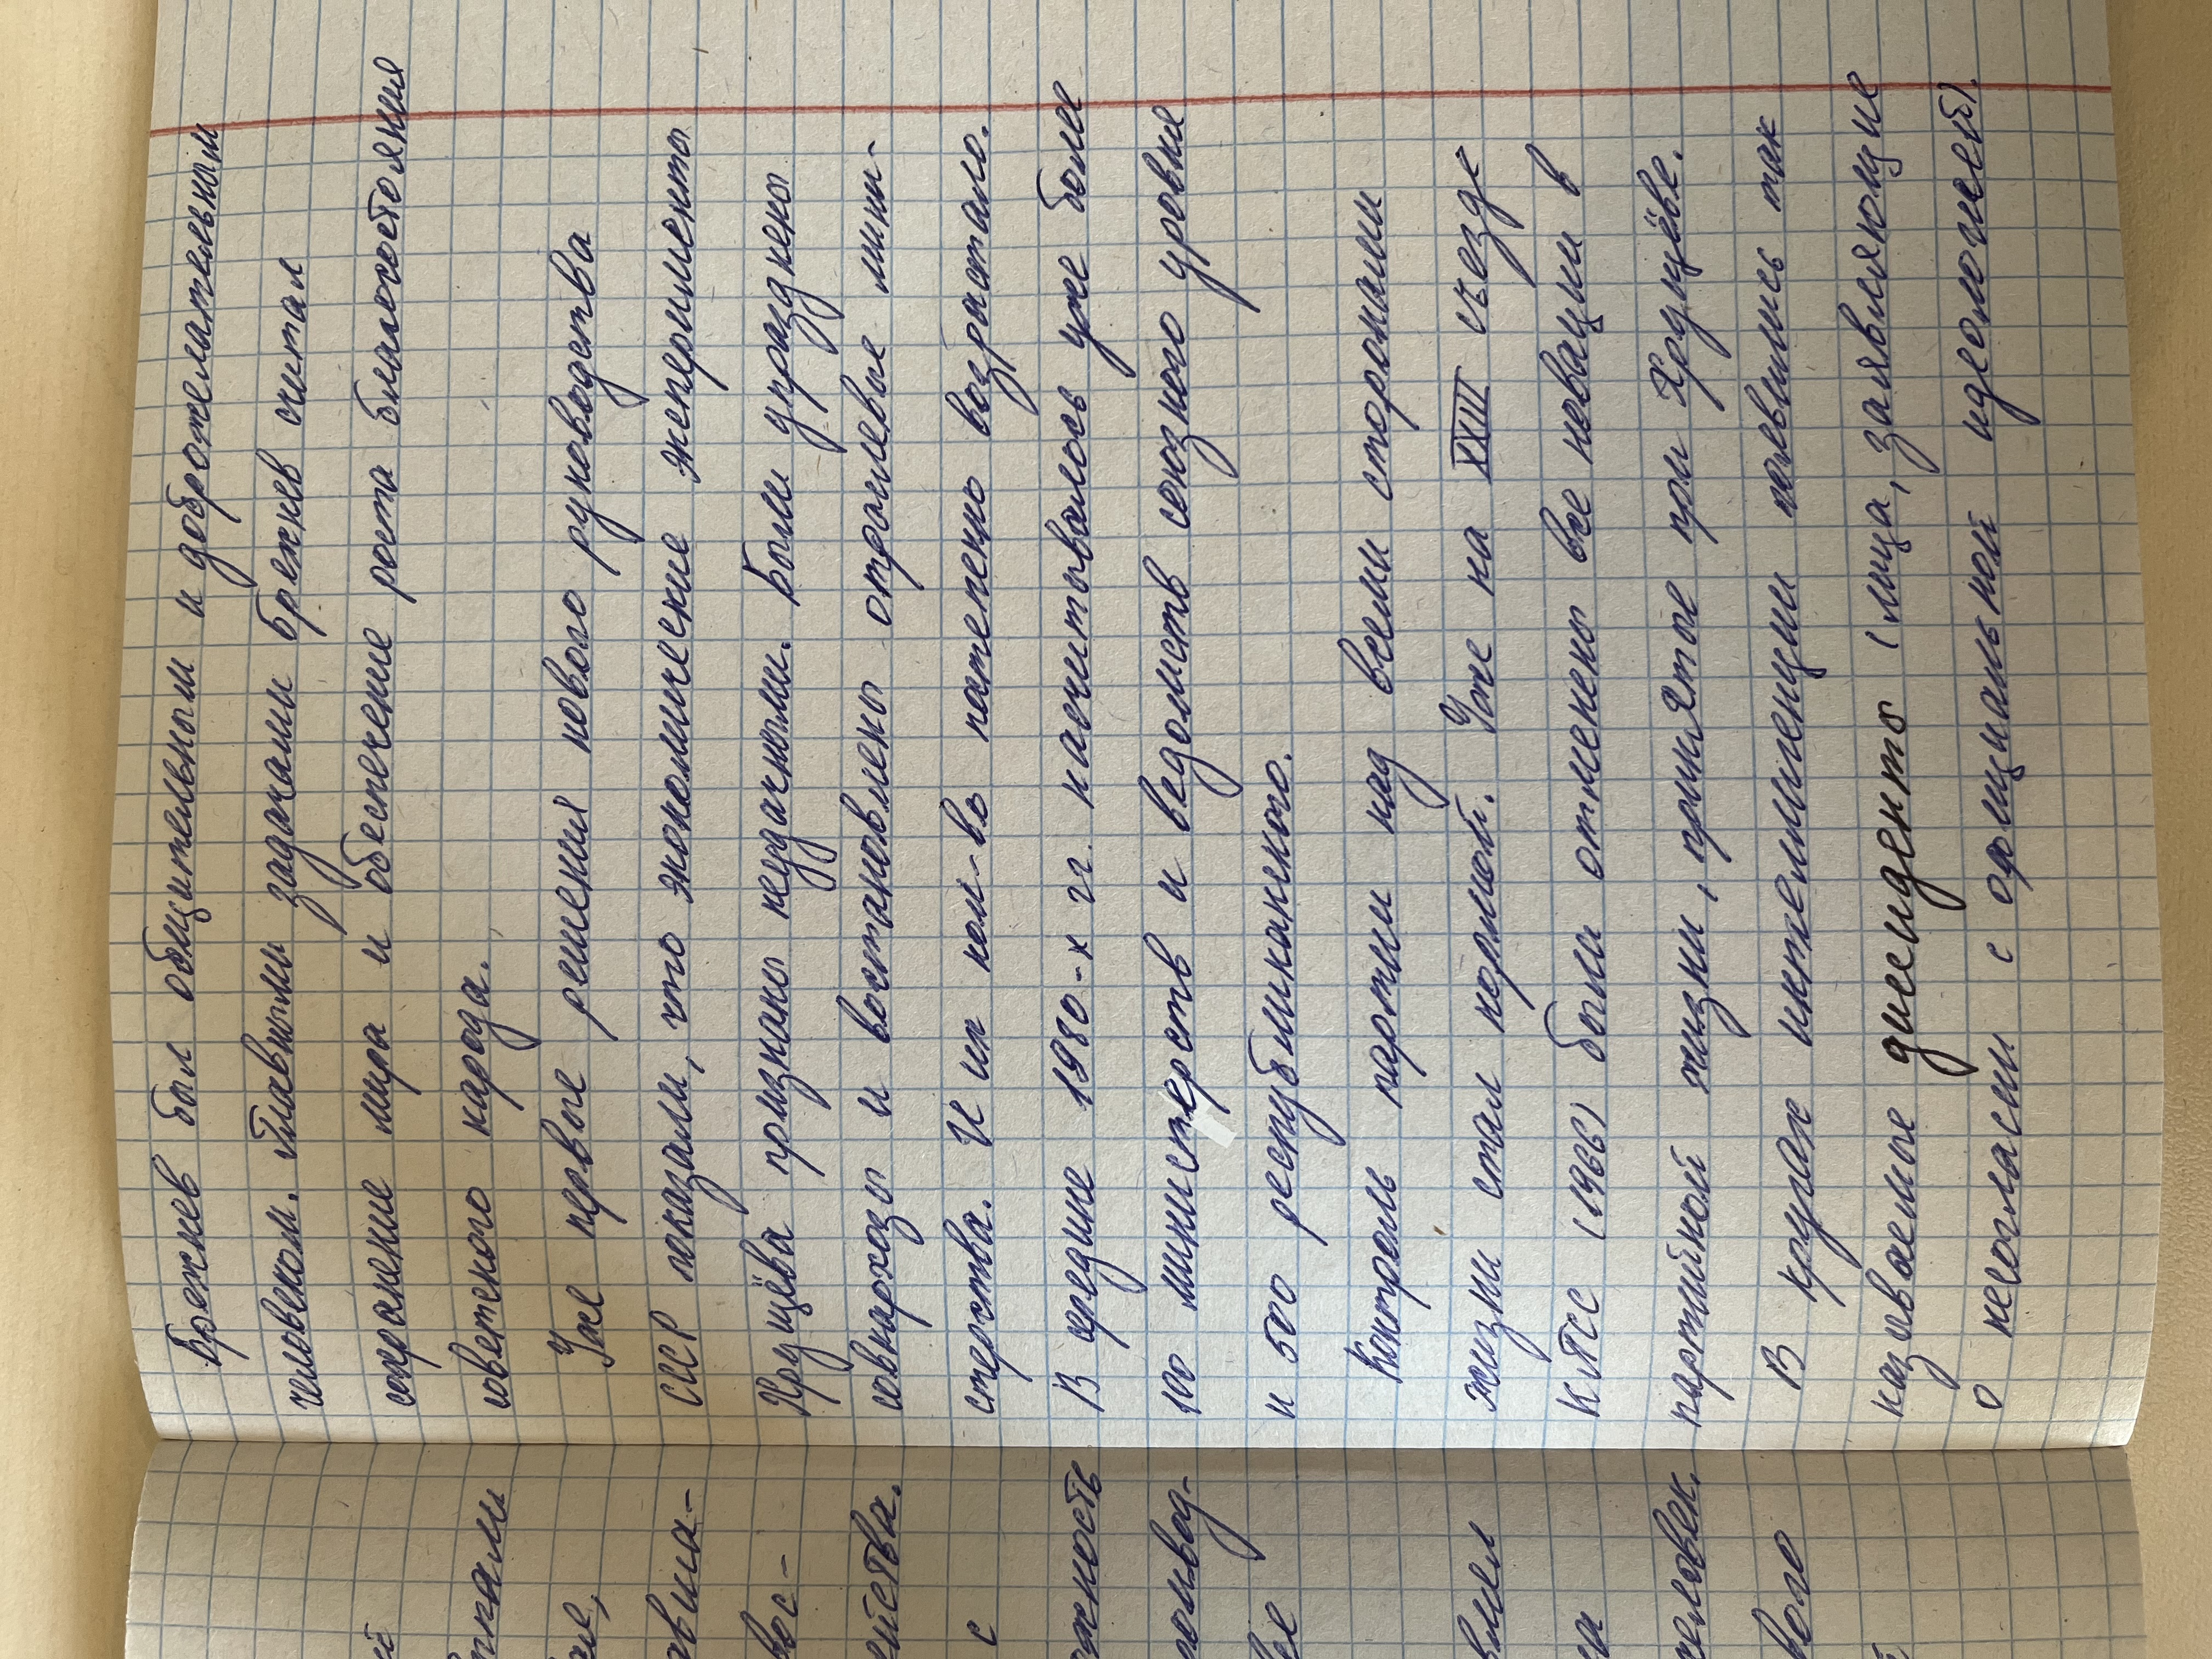 Брежнев был общительным и доброжелательным
человеком. Главными задачами Брежнев считал
сохранение мира и обеспечение роста благосостояния
советского народа.
Уже первые решения нового руководства
СССР показали, что экономические эксперименты
Хрущёва признаны неудачными. Были упразднены
совнархозы и востановлены отраслевые мини-
стерства. И их кол-во постепенно возрастало.
В средине 1980-х гг. насчитывалось уже более
100 министерств и ведомств союзного уровня
и 500 республиканского.
Контроль партии над всеми сторонами
жизни стал нормой. Уже на XXIII съезде
КПСС (1966) были отменены все новации в
партийной жизни, принятые при Хрущёве.
В кругах интеллигенции появились так
называемые диссиденты (лица, заявляющие
о несогласии с официальной идеологией).
с
все
человек.